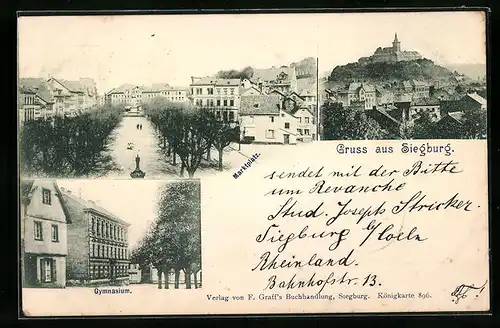 Marktplatz.
Gruss aus Siegburg.
sendet mit der Bitte
um Revanche
Stud. Joseph Stricker.
Siegburg b/Coeln
Rheinland.
Bahnhofstr. 13.
Gymnasium.
Verlag von F. Graff's Buchhandlung, Siegburg. Königkarte 896.